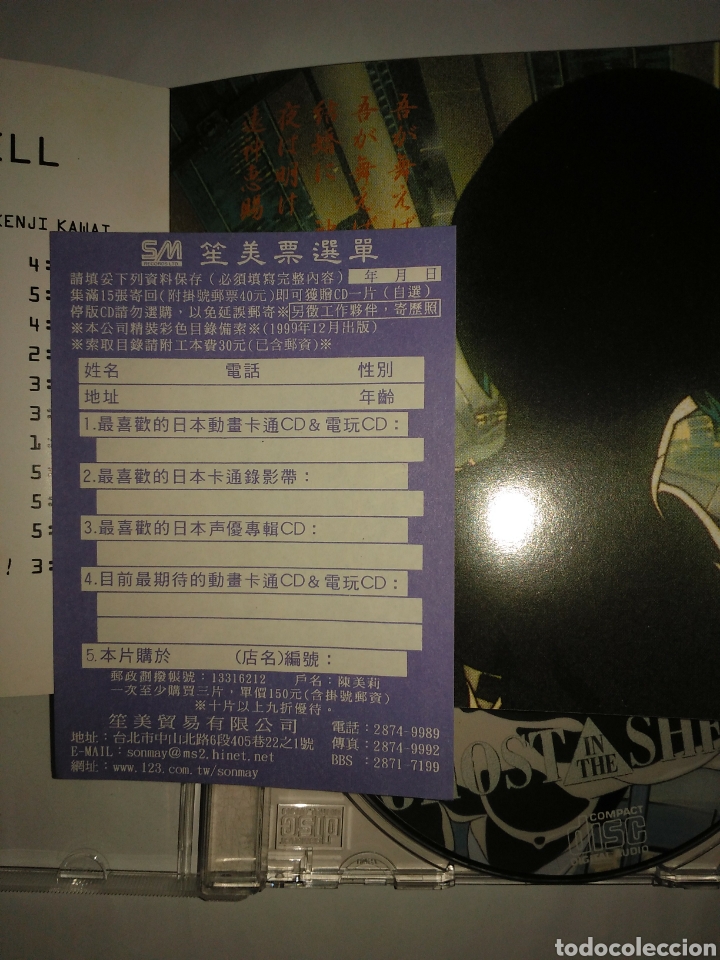 ELL
KENJI KAWAI
4:
5:
4:
2:
3:
3:
1:
5:
5:
5:
! 3:
吾が舞えば
吾が舞えば
夜は明け
遠神恵賜
SM
笙美票選單
請填妥下列資料保存(必須填寫完整內容) 年 月 日
集滿15張寄回(附掛號郵票40元)即可獲贈CD一片(自選)
停版CD請勿選購,以免延誤郵寄※另徵工作夥伴,寄歷照
※本公司精裝彩色目錄備索※(1999年12月出版)
※索取目錄請附工本費30元(已含郵資)※
姓名 電話 性別
地址 年齡
1.最喜歡的日本動畫卡通CD&電玩CD:
2.最喜歡的日本卡通錄影帶:
3.最喜歡的日本声優專輯CD:
4.目前最期待的動畫卡通CD&電玩CD:
5.本片購於 (店名)編號:
郵政劃撥帳號:13316212 戶名:陳美莉
一次至少購買三片,單價150元(含掛號郵資)
※十片以上九折優待。
笙美貿易有限公司 電話:2874-9989
地址:台北市中山北路6段405巷22之1號 傳真:2874-9992
E-MAIL:sonmay@ms2.hinet.net BBS :2871-7199
網址:www.123.com.tw/sonmay
GHOST IN THE SHE
COMPACT
DISC
DIGITAL AUDIO
todocoleccion
todocoleccion.net